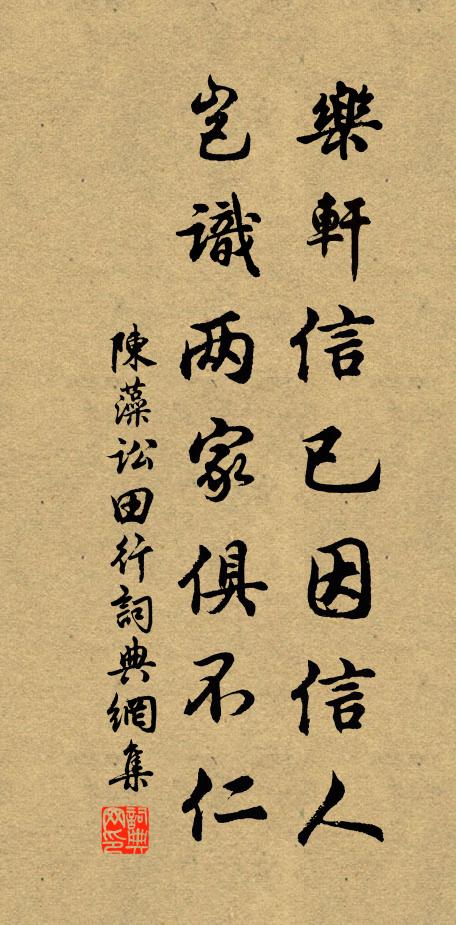 樂軒信已因信人
豈識两家俱不仁
陳藻訟田行詞典網集
詞典网印